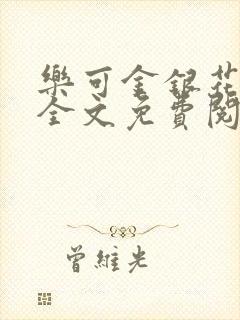 樂可金銀花
全文免費閱
曾維光